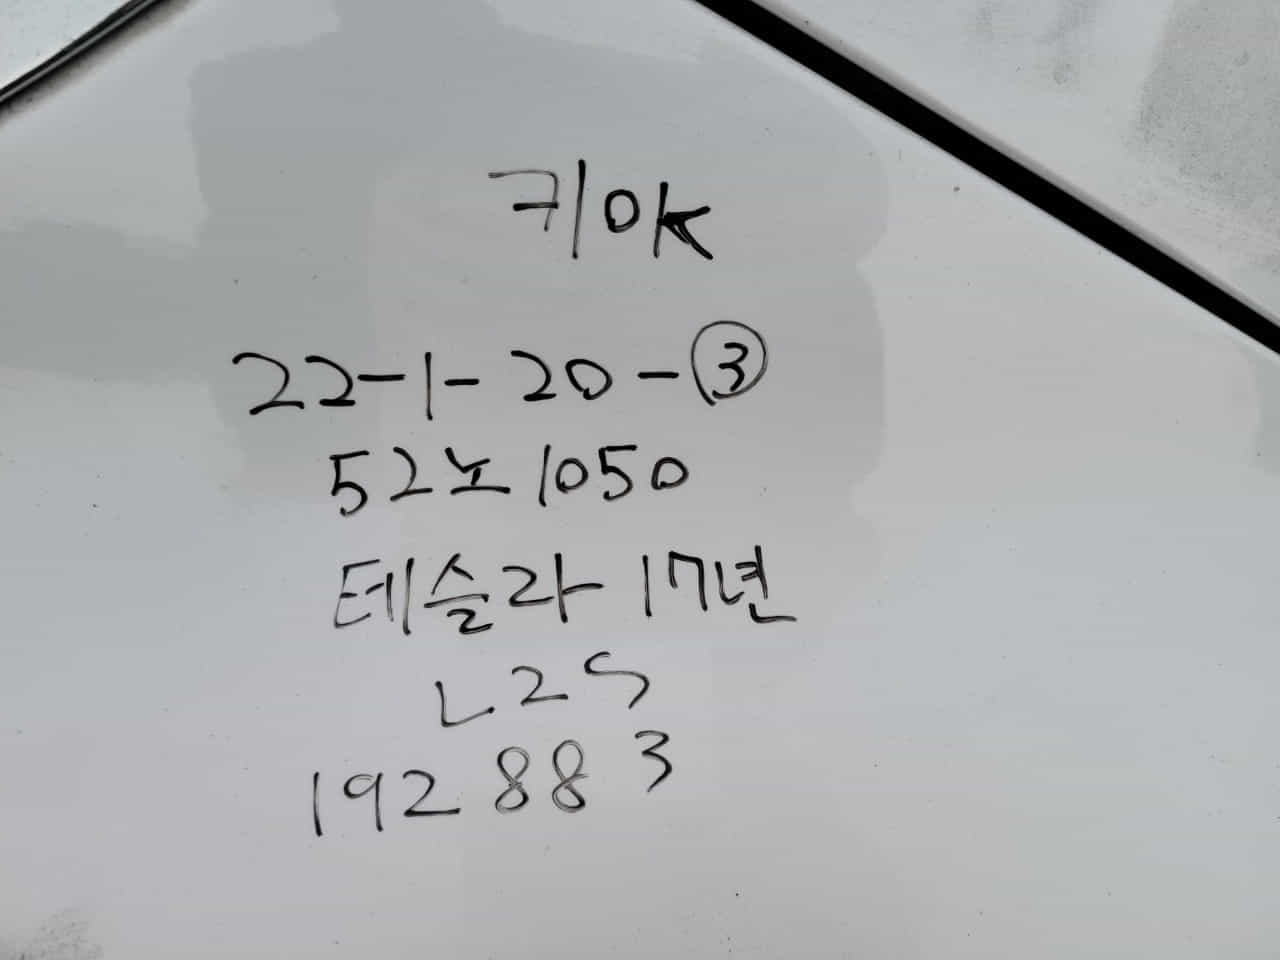 키OK
22-1-20-③
52노1050
테슬라 17년
L2S
192883